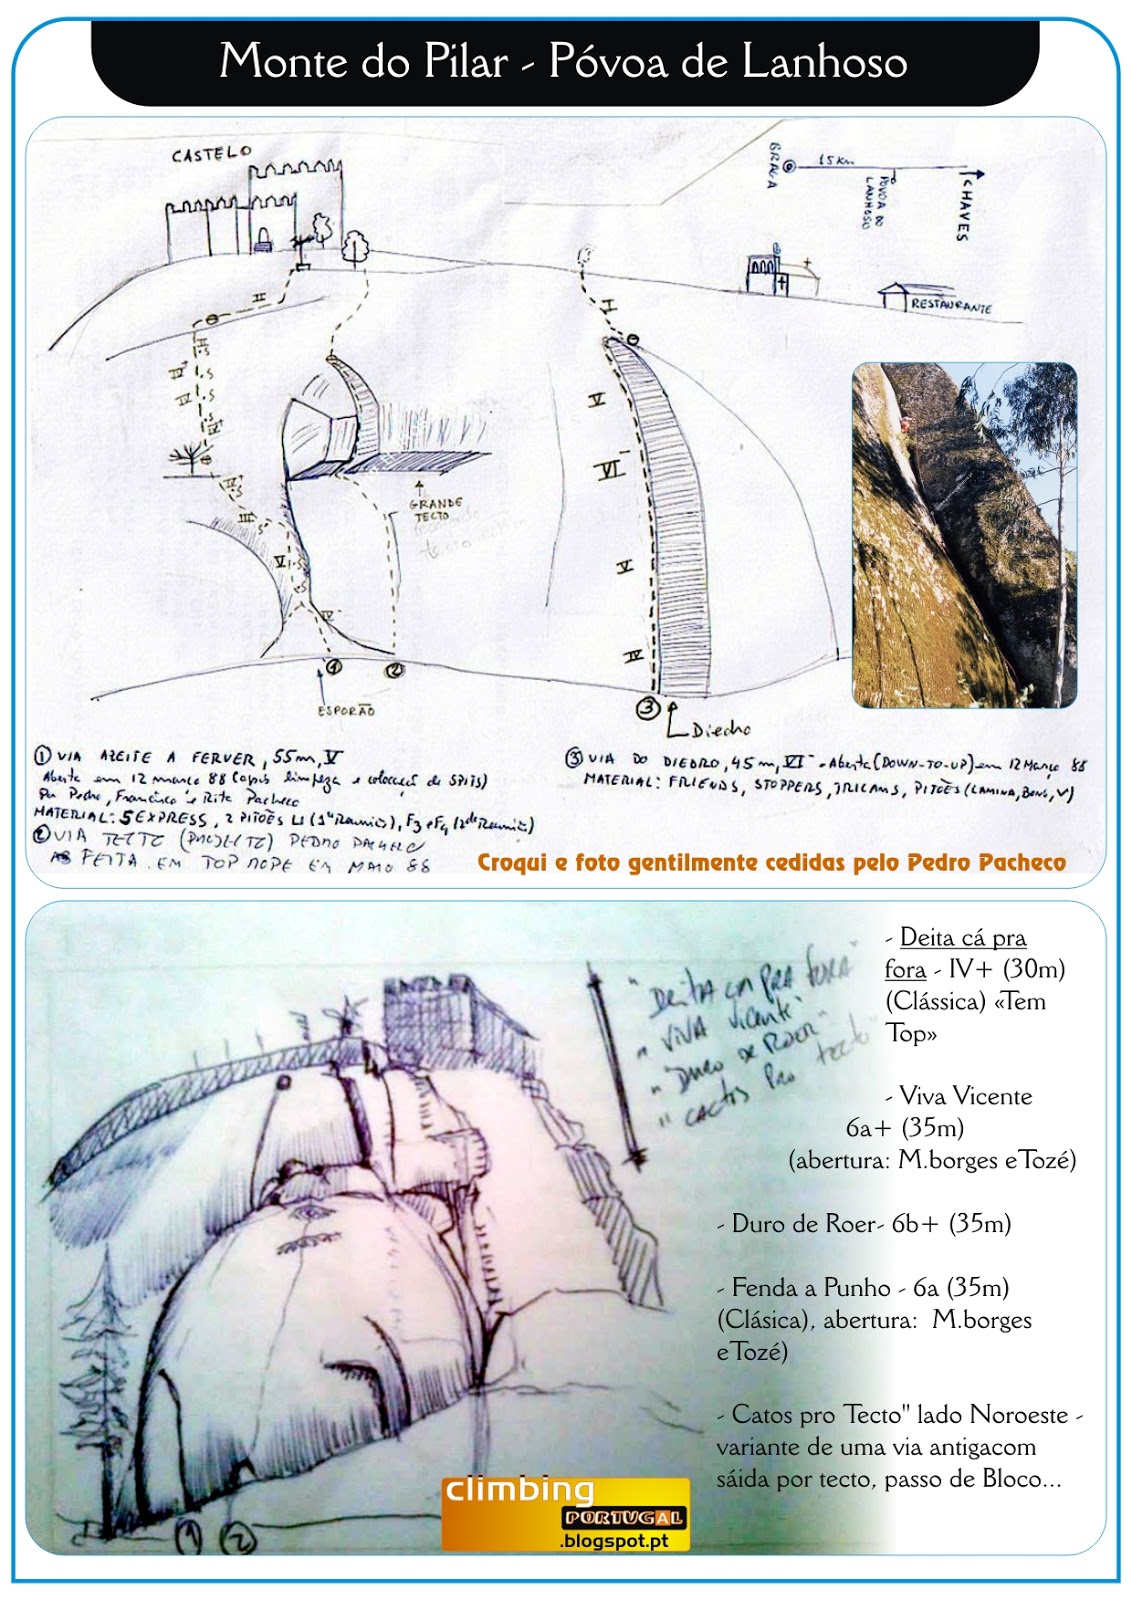 Monte do Pilar - Póvoa de Lanhoso
CASTELO
BRAGA
15 Km
PÓVOA DO
LANHOSO
CHAVES
RESTAURANTE
II
II
IV+
IV
IV
IV
III
V
IV
GRANDE
TECTO
I
V
VI-
V
IV
1
2
ESPORÃO
3
Diedro
1 VIA AZEITE A FERVER, 55m, V
Aberta em 12 março 88 (após limpeza e colocação de SPITS)
Por Pedro, Francisco e Rita Pacheco
MATERIAL: 5 EXPRESS, 2 PITÕES
2 VIA TECTO (PROJECTO) PEDRO PACHECO
FEITA EM TOP ROPE EM MAIO 88
3 VIA DO DIEDRO, 45m, VI- - Aberta (DOWN-TO-UP) em 12 Março 88
MATERIAL: FRIENDS, STOPPERS, TRICAMS, PITÕES (LAMINA, BONG, V)
Croqui e foto gentilmente cedidas pelo Pedro Pacheco
"DEITA CA PRA FORA"
"VIVA Vicente"
"DURO DE ROER"
"CACTOS PRO TECTO"
- Deita cá pra
fora - IV+ (30m)
(Clássica) «Tem
Top»
- Viva Vicente
6a+ (35m)
(abertura: M.borges eTozé)
- Duro de Roer- 6b+ (35m)
- Fenda a Punho - 6a (35m)
(Clásica), abertura: M.borges
eTozé)
- Catos pro Tecto" lado Noroeste -
variante de uma via antigacom
sáida por tecto, passo de Bloco...
1
2
climbing
PORTUGAL
.blogspot.pt